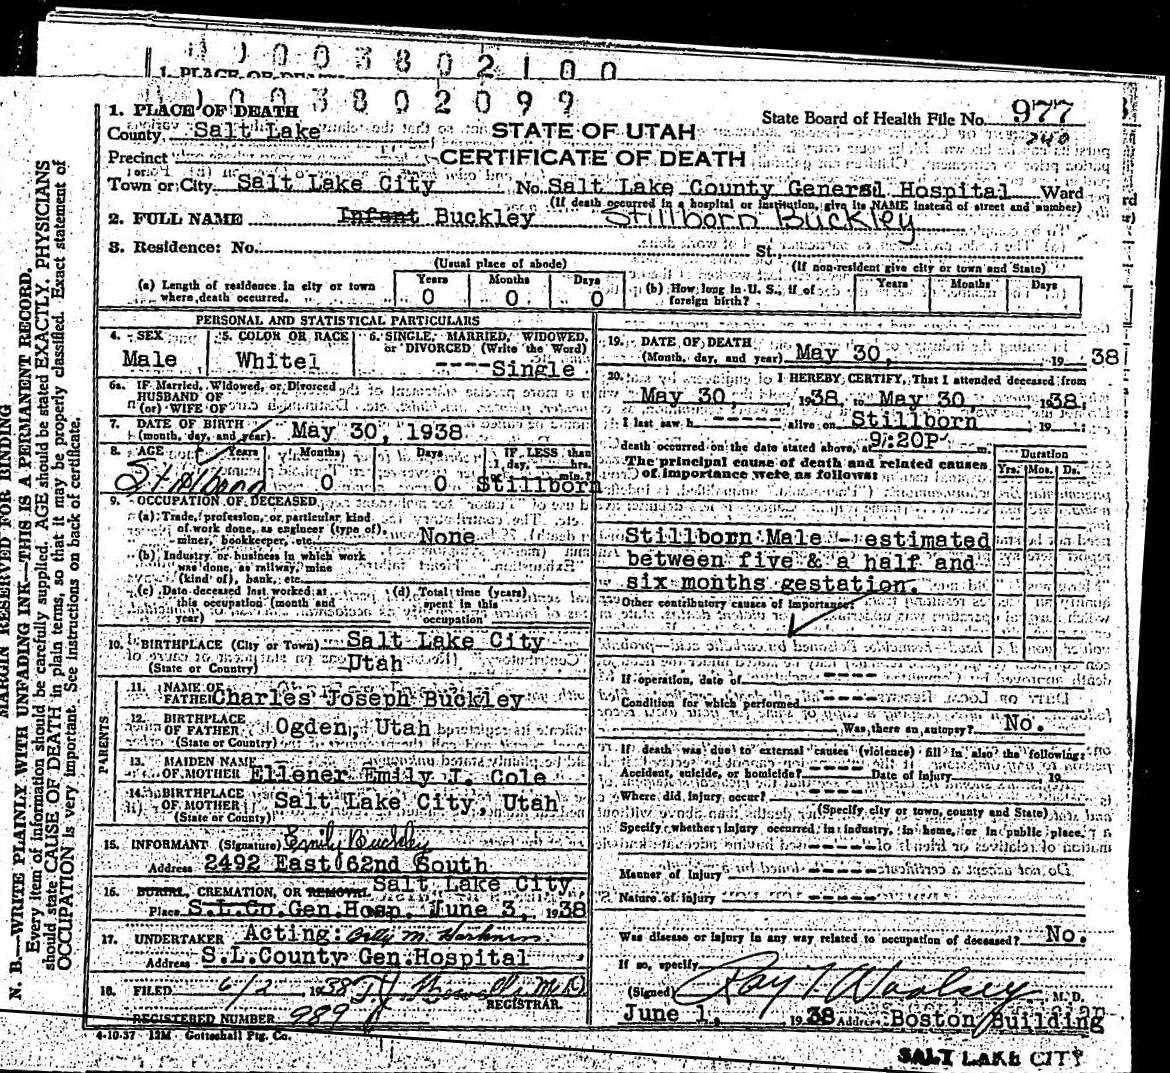 0003802100
1. PLACE OF DEATH
0003802099
1. PLACE OF DEATH
County, Salt Lake
STATE OF UTAH
State Board of Health File No. 977
240
Precinct
CERTIFICATE OF DEATH
Town or City Salt Lake City No. Salt Lake County General Hospital Ward
(If death occurred in a hospital or institution, give its NAME instead of street and number)
2. FULL NAME Infant Buckley Stillborn Buckley
3. Residence: No. St.
(Usual place of abode) (If non-resident give city or town and State)
(a) Length of residence in city or town where death occurred. Years 0 Months 0 Days 0
(b) How long in U. S., if of foreign birth? Years Months Days
PERSONAL AND STATISTICAL PARTICULARS
4. SEX Male
5. COLOR OR RACE White
6. SINGLE, MARRIED, WIDOWED, or DIVORCED (Write the Word) ----Single
6a. IF Married, Widowed, or Divorced
HUSBAND OF
(or) WIFE OF
7. DATE OF BIRTH (month, day, and year) May 30, 1938
8. AGE Years Months Days IF LESS than 1 day, hrs.
Stillborn 0 0 Stillborn min.
9. OCCUPATION OF DECEASED
(a) Trade, profession, or particular kind of work done, as engineer (type of), miner, bookkeeper, etc. None
(b) Industry or business in which work was done, as railway, mine (kind of), bank, etc.
(c) Date deceased last worked at this occupation (month and year)
(d) Total time (years) spent in this occupation
10. BIRTHPLACE (City or Town) Salt Lake City
(State or Country) Utah
PARENTS
11. NAME OF FATHER Charles Joseph Buckley
12. BIRTHPLACE OF FATHER Ogden, Utah
(State or Country)
13. MAIDEN NAME OF MOTHER Ellener Emily J. Cole
14. BIRTHPLACE OF MOTHER Salt Lake City, Utah
(State or Country)
15. INFORMANT (Signature) Emily Buckley
Address 2492 East 62nd South
16. BURIAL, CREMATION, OR REMOVAL Salt Lake City
Place S.L.Co.Gen.Hosp. June 3, 1938
17. UNDERTAKER Acting:
Address S.L.County Gen.Hospital
18. FILED 6/2 1938 M.D.
REGISTRAR.
REGISTERED NUMBER 989
4-10-37 12M Gottschall Ptg. Co.
19. DATE OF DEATH (Month, day, and year) May 30, 1938
20. I HEREBY CERTIFY, That I attended deceased from
May 30, 1938, to May 30, 1938,
I last saw h ---- alive on Stillborn 19
death occurred on the date stated above, at 9:20P m.
The principal cause of death and related causes of importance were as follows:
Duration
Yrs. Mos. Ds.
Stillborn Male - estimated
between five & a half and
six months gestation.
Other contributory causes of importance:
If operation, date of ----
Condition for which performed ----
Was there an autopsy? No.
If death was due to external causes (violence) fill in also the following:
Accident, suicide, or homicide? ---- Date of injury 19
Where did injury occur? ----
(Specify city or town, county and State)
Specify whether injury occurred in industry, in home, or in public place.
----
Manner of injury ----
Nature of injury ----
Was disease or injury in any way related to occupation of deceased? No.
If so, specify
(Signed) Ray T Woolsey M. D.
June 1, 1938 Address Boston Building
SALT LAKE CITY
MARGIN RESERVED FOR BINDING
N. B.—WRITE PLAINLY WITH UNFADING INK—THIS IS A PERMANENT RECORD.
Every item of information should be carefully supplied. AGE should be stated EXACTLY. PHYSICIANS
should state CAUSE OF DEATH in plain terms, so that it may be properly classified. Exact statement of
OCCUPATION is very important. See instructions on back of certificate.